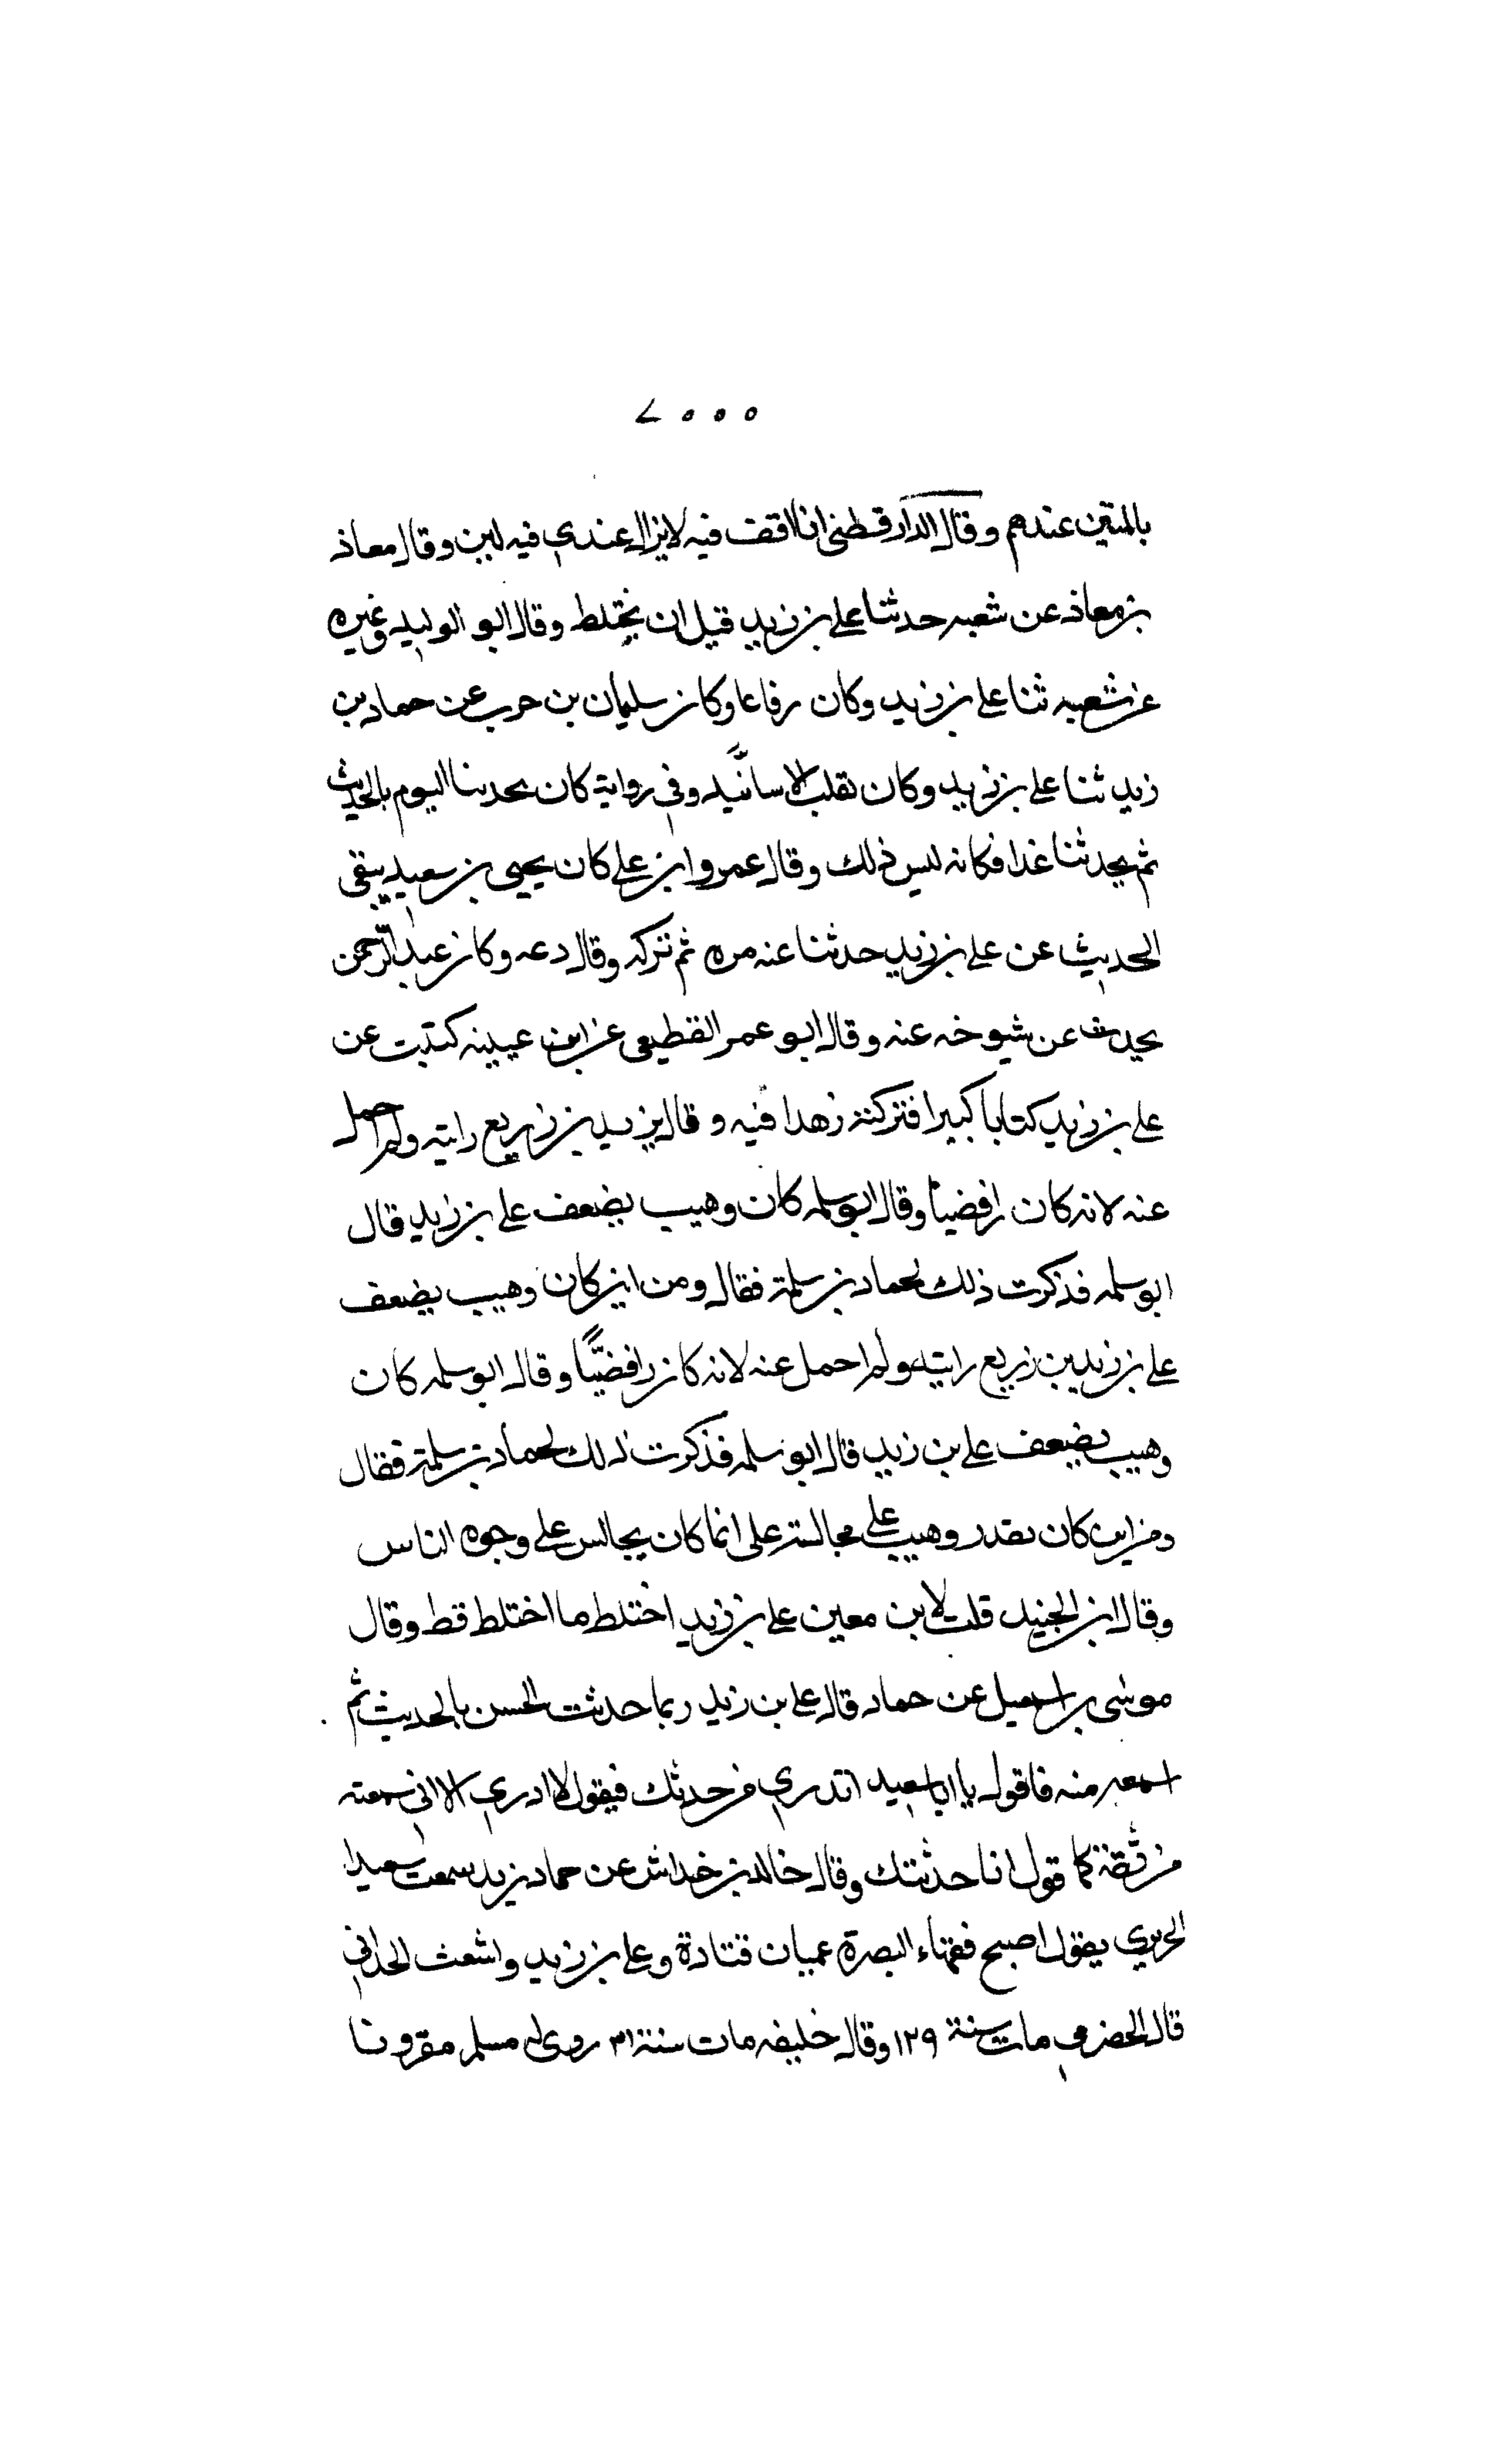 بالمتين عندهم وقال الدارقطني انا اقف فيه لا يزال عندي فيه لين وقال معاذ
بن معاذ عن شعبه حدثنا علي بن زيد قبل ان يختلط وقال ابو الوليد وغيره
عن شعبه ثنا علي بن زيد وكان رفاعا وكان سليمان بن حرب عن حماد بن
زيد ثنا علي بن زيد وكان يقلب الاسانيد وفي رواية كان يحدثنا اليوم بالحديث
ثم يحدثنا غدا فكانه ليس ذلك وقال عمرو ابن علي كان يحيى بن سعيد يتقي
الحديث عن علي بن زيد حدثنا عنه مره ثم تركه وقال دعه وكان عبد الرحمن
يحدث عن شيوخه عنه وقال ابو عمر القطيعي عن ابن عيينه كتبت عن
علي بن زيد كتابا كبيرا فتركته زهدا فيه وقال يزيد بن زريع رايته ولم احمل
عنه لانه كان رافضيا وقال ابو سلمه كان وهيب يضعف علي بن زيد قال
ابو سلمه فذكرت ذلك لحماد بن سلمة فقال ومن اين كان وهيب يضعف
علي بن زيد بن زريع رايته ولم احمل عنه لانه كان رافضيًّا وقال ابو سلمه كان
وهيب يضعف علي بن زيد قال ابو سلمه فذكرت ذلك لحماد بن سلمة فقال
ومن اين كان يقدر وهيب علي مجالسة علي انما كان يجالس علي وجوه الناس
وقال ابن الجنيد قلت لابن معين علي بن زيد اختلط ما اختلط قط وقال
موسى بن اسمعيل عن حماد قال علي بن زيد ربما حدثت الحسن بالحديث ثم
اسمعه منه فاقول يا ابا سعيد اتدري من حدثك فيقول لا ادري الا اني سمعته
من ثقة فاقول انا حدثتك وقال خالد بن خداش عن حماد بن زيد سمعت سعيدا
الجريري يقول اصبح فقهاء البصرة عميان قتادة وعلي بن زيد واشعث الحداني
قال الحضرمي مات سنة ١٢٩ وقال خليفه مات سنة ٣١ روى له مسلم مقرونا